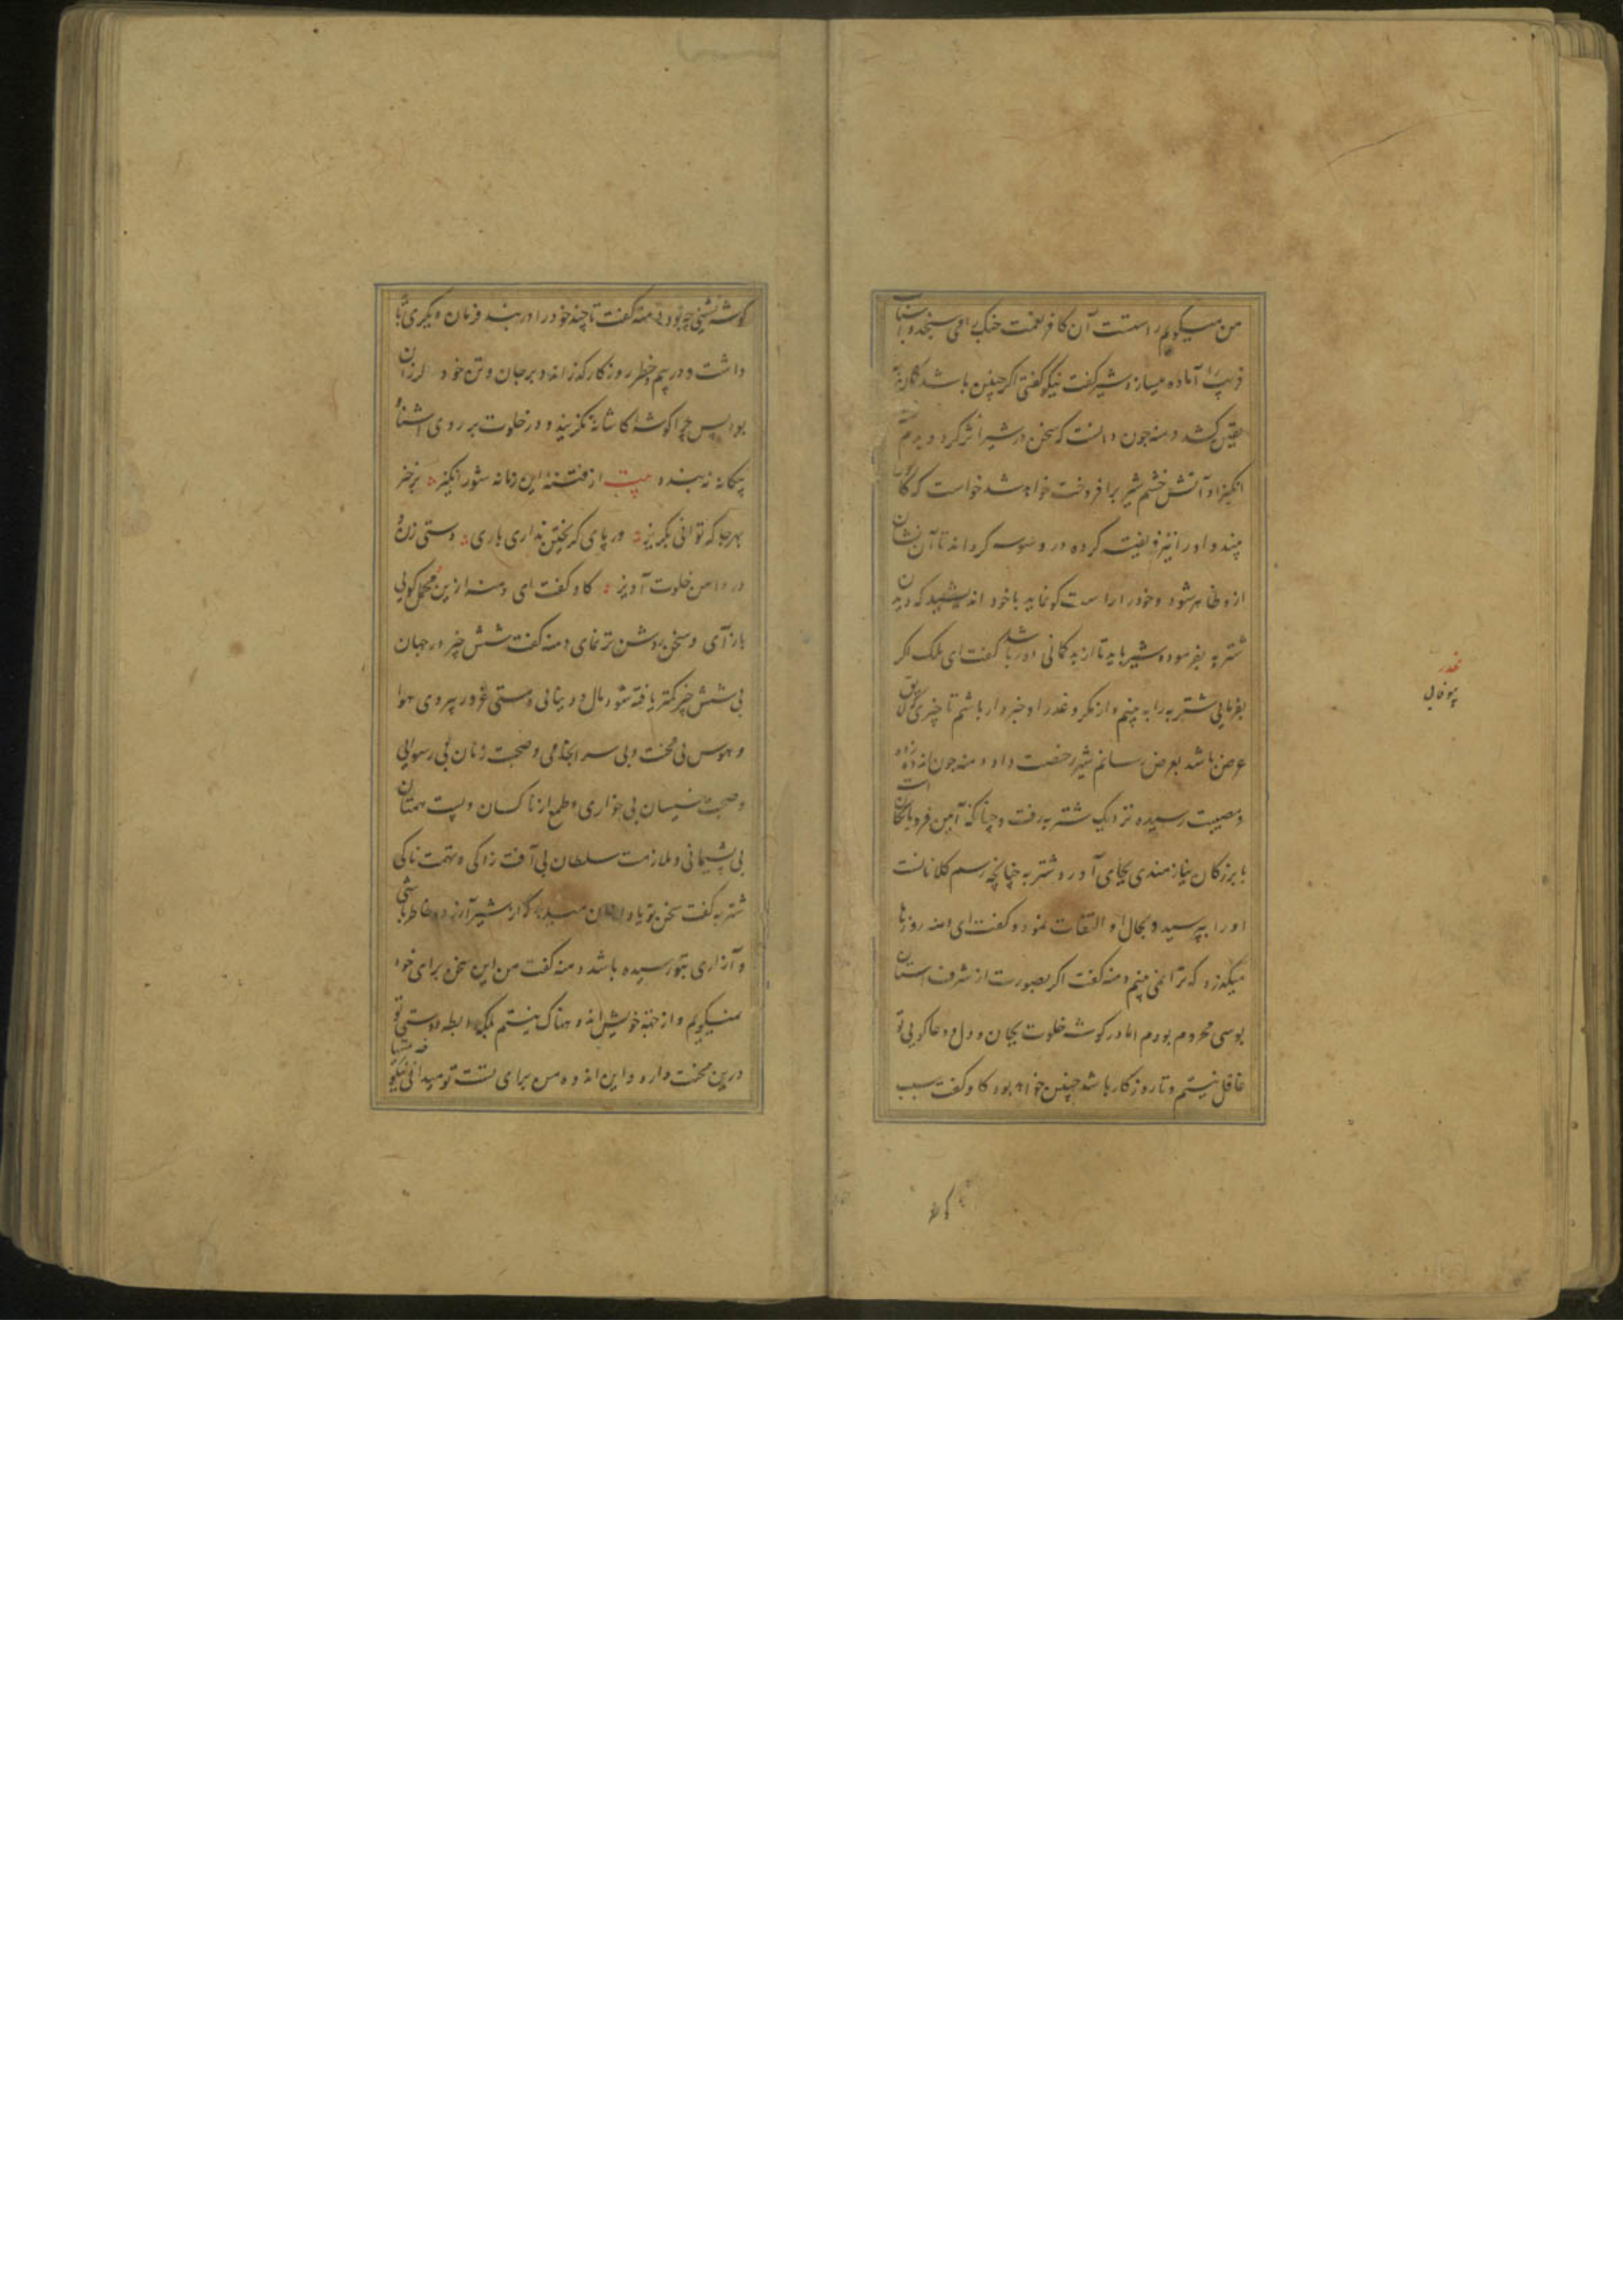 من میکویم راستست آن کافر نعمت جنک را می سنجد و اسباب
فریب را آماده میسازد شیر کفت نیکو کفتی اکر چنین باشد کمان
یقین کشد دمنه چون دانست که سخن در شیر اثر کرد و بدم
انکیز او آتش خشم شیر برافروخت خواهد شد خواست که کاو را
بیند و او را نیز فریفته کرده در وسوسه کرداند تا آن نشان
ازو ظاهر شود و خود را راست کو نماید با خود اندیشید که دیدن
شتربه بفرموده شیر باید تا از بدکمانی دور باشد کفت ای ملک اکر
بفرمایی شتربه را به بینم و از مکر و غدر او خبردار باشم تا چیزی که لایق
عرض باشد بعرض رسانم شیر رخصت داد و دمنه چون اندوه زده
و مصیبت رسیده نزدیک شتربه رفت و چنانکه آیین فرومایکان است
با بزرکان نیازمندی بجای آورد شتربه چنانچه رسم کلانانست
او را بپرسید و بحال او التفات نمود و کفت ای دمنه روزها
میکذرد که ترا نمی بینم دمنه کفت اکر بصورت از شرف استان
بوسی محروم بودم اما در کوشه خلوت بجان و دل دعا کویی تو
غافل نیستم و تا روزکار باشد چنین خواهد بود کاو کفت سبب
کوشه
غدر
بیوفایی
کوشه نشینی چه بود دمنه کفت تا چند خود را در بند فرمان دیکری باید
داشت و در بیم و خطر روزکار کذراند و بر جان و تن خود لرزان
بود پس چرا کوشه کاشانه نکزیند و در خلوت بر روی اشنا و
بیکانه نه بندد بیت از فتنه این زمانه شور انکیز برخیز
بهر جا که توانی بکریز ور پای کریختن نداری باری دستی زن و
در دامن خلوت آویز کاو کفت ای دمنه ازین مجمل کویی
باز آی و سخن روشن تر نمای دمنه کفت شش چیز در جهان
بی شش چیز کمتر یافته شود مال دنیا بی مستی غرور پیروی هوا
و هوس بی محنت و بی سر انجامی و صحبت زنان بی رسوایی
و صحبت خسیسان بی خواری و طمع از ناکسان و پست همتان
بی پشیمانی و ملازمت سلطان بی آفت زدکی و تهمت ناکی
شتربه کفت سخن تو یاد از آن میدهد که از شیر آزرده خاطر باشی
و آزاری بتو رسیده باشد دمنه کفت من این سخن برای خود
نمیکویم و از جهة خویش اندوهناک نیستم بلکه رابطه دوستی تو
درین محنت دارد و این اندوه من برای تست تو میدانی نیکو